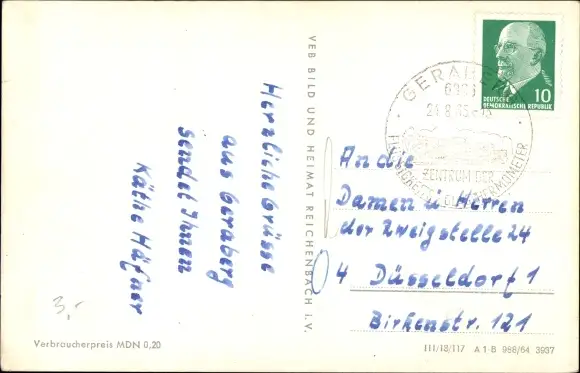 Herzliche Grüsse
aus Geraberg
sendet Ihnen
Käthe Häfner
3,-
Verbraucherpreis MDN 0,20
VEB BILD UND HEIMAT REICHENBACH i. V.
DEUTSCHE
DEMOKRATISCHE REPUBLIK
10
GERABERG
ZENTRUM DER
An die
Damen u Herren
der Zweigstelle 24
4 Düsseldorf 1
Birkenstr. 121
III/18/117 A 1 B 988/64 3937